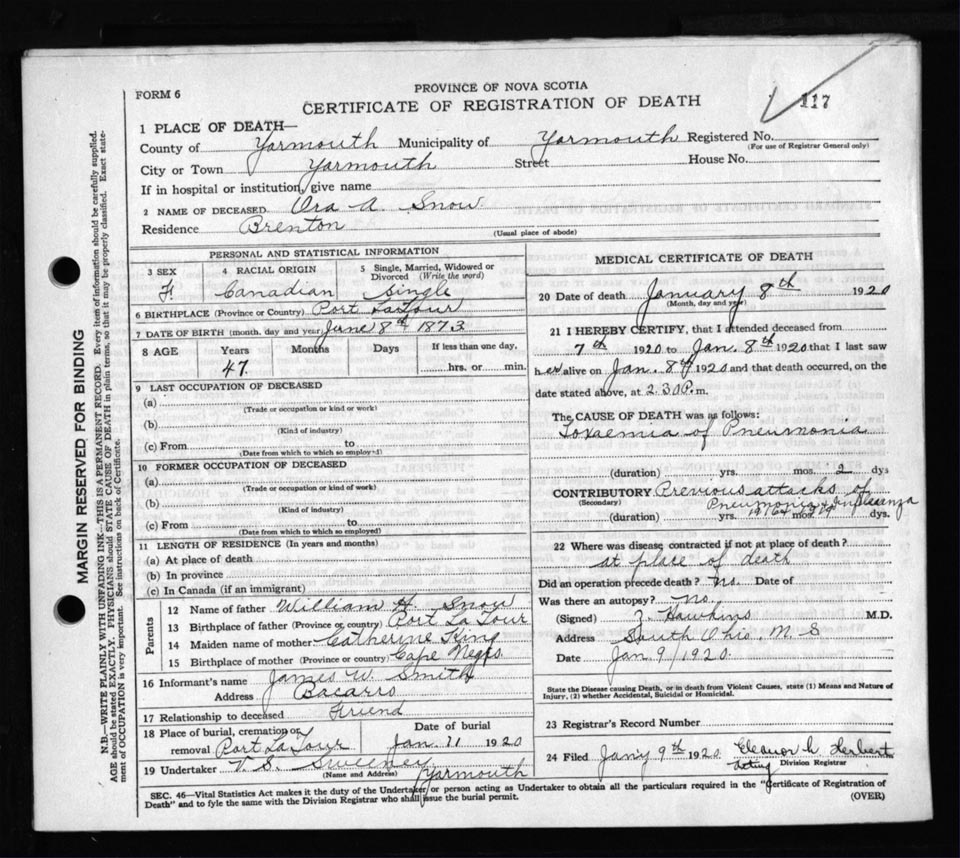 FORM 6
PROVINCE OF NOVA SCOTIA
CERTIFICATE OF REGISTRATION OF DEATH
117
1 PLACE OF DEATH—
County of Yarmouth Municipality of Yarmouth Registered No.
(For use of Registrar General only)
City or Town Yarmouth Street House No.
If in hospital or institution, give name
2 NAME OF DECEASED Ora A. Snow
Residence Brenton
(Usual place of abode)
PERSONAL AND STATISTICAL INFORMATION
3 SEX 4 RACIAL ORIGIN 5 Single, Married, Widowed or Divorced (Write the word)
F. Canadian Single
6 BIRTHPLACE (Province or Country) Port LaTour
7 DATE OF BIRTH (month, day and year) June 8th 1873
8 AGE Years Months Days If less than one day,
47. hrs. or min.
9 LAST OCCUPATION OF DECEASED
(a)
(Trade or occupation or kind of work)
(b)
(Kind of industry)
(c) From to
(Date from which to which so employed)
10 FORMER OCCUPATION OF DECEASED
(a)
(Trade or occupation or kind of work)
(b)
(Kind of industry)
(c) From to
(Date from which to which so employed)
11 LENGTH OF RESIDENCE (In years and months)
(a) At place of death
(b) In province
(c) In Canada (if an immigrant)
Parents
12 Name of father William H. Snow
13 Birthplace of father (Province or country) Port La Tour
14 Maiden name of mother Catherine King
15 Birthplace of mother (Province or country) Cape Negro.
16 Informant's name James W. Smith
Address Bacarro
17 Relationship to deceased Friend
18 Place of burial, cremation or removal Port La Tour
Date of burial
Jan. 11 1920
19 Undertaker V. S. Sweeney Yarmouth
(Name and Address)
MEDICAL CERTIFICATE OF DEATH
20 Date of death January 8th 1920
(Month, day and year)
21 I HEREBY CERTIFY, that I attended deceased from
7th 1920 to Jan. 8th 1920 that I last saw
her alive on Jan. 8th 1920 and that death occurred, on the
date stated above, at 2.30 P. m.
The CAUSE OF DEATH was as follows:
Toxaemia of Pneumonia
(duration) yrs. mos. 2 dys
CONTRIBUTORY Previous attacks of
(Secondary) Pneumonia & Influenza
(duration) yrs. mos. dys.
22 Where was disease contracted if not at place of death?
at place of death
Did an operation precede death? No. Date of
Was there an autopsy? No.
(Signed) Z. Hawkins M.D.
Address South Ohio. N. S
Date Jan 9/1920.
State the Disease causing Death, or in death from Violent Causes, state (1) Means and Nature of
Injury, (2) whether Accidental, Suicidal or Homicidal.
23 Registrar's Record Number
24 Filed Jany 9th 1920 Eleanor h. Herbert
Acting Division Registrar
SEC. 46—Vital Statistics Act makes it the duty of the Undertaker or person acting as Undertaker to obtain all the particulars required in the "Certificate of Registration of
Death" and to fyle the same with the Division Registrar who shall issue the burial permit.
(OVER)
MARGIN RESERVED FOR BINDING
N.B.—WRITE PLAINLY WITH UNFADING INK—THIS IS A PERMANENT RECORD. Every item of information should be carefully supplied.
AGE should be stated EXACTLY. PHYSICIANS should STATE CAUSE OF DEATH in plain terms, so that it may be properly classified. Exact state-
ment of OCCUPATION is very important. See instructions on back of Certificate.